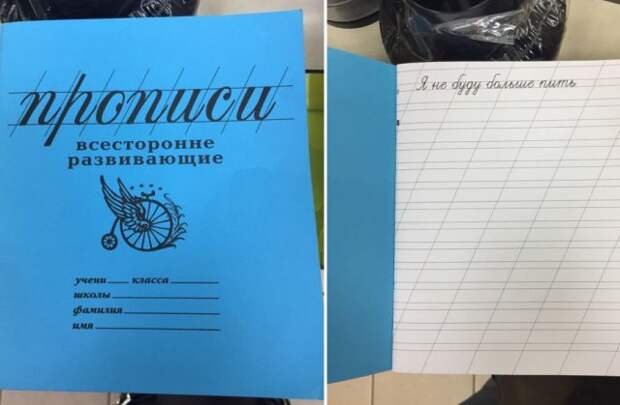 прописи
всесторонне
развивающие
учени____ класса________
школы________________
фамилия______________
имя__________________
Я не буду больше пить